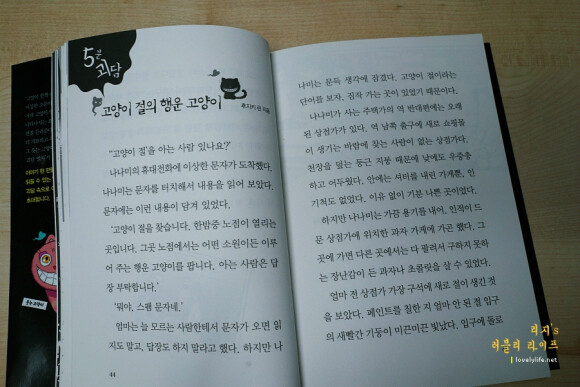 5분
괴담
고양이 절의 행운 고양이
"'고양이 절'을 아는 사람 있나요?"
나나미의 휴대전화에 이상한 문자가 도착했다.
나나미는 문자를 터치해서 내용을 읽어 보았다.
문자에는 이런 내용이 담겨 있었다.
'고양이 절을 찾습니다. 한밤중 노점이 열리는
곳입니다. 그곳 노점에서는 어떤 소원이든 이루
어 주는 행운 고양이를 팝니다. 아는 사람은 답
장 부탁합니다.'
'뭐야, 스팸 문자네.'
엄마는 늘 모르는 사람한테서 문자가 오면 읽
지도 말고, 답장도 하지 말라고 했다. 하지만 나
44
나미는 문득 생각에 잠겼다. 고양이 절이라는
단어를 보자, 짐작 가는 곳이 있었기 때문이다.
나나미가 사는 주택가의 역 반대편에는 오래
된 상점가가 있다. 역 남쪽 출구에 새로 쇼핑몰
이 생기는 바람에 찾는 사람이 없는 상점가다.
천장을 덮는 둥근 지붕 때문에 낮에도 우중충
하고 어두웠다. 안에는 셔터를 내린 가게뿐, 인
기척도 없었다. 이유 없이 기분 나쁜 곳이었다.
하지만 나나미는 가끔 용기를 내어, 인적이 드
문 상점가에 위치한 과자 가게에 가곤 했다. 그
곳에 가면 다른 곳에서는 다 팔려서 구하지 못하
는 장난감이 든 과자나 초콜릿을 살 수 있었다.
얼마 전 상점가 가장 구석에 새로 절이 생긴 것
을 보았다. 페인트를 칠한 지 얼마 안 된 절 입구
의 새빨간 기둥이 미끈미끈 빛났다. 입구에 들로
리지's
러블리 라이프
lovelylife.net